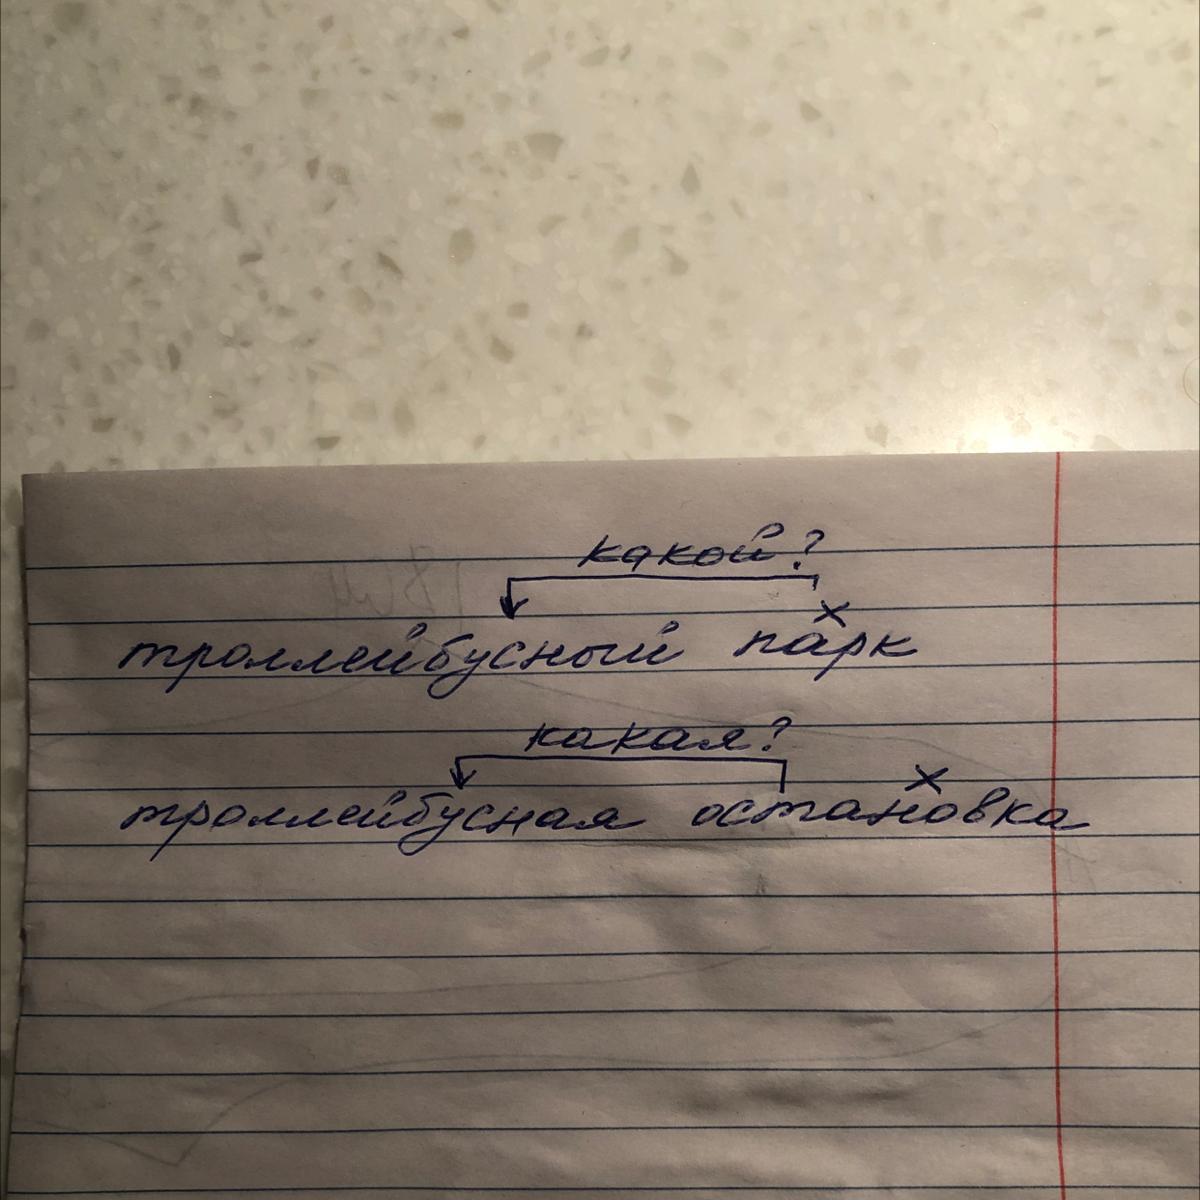 какой?
х
троллейбусный парк
какая?
х
троллейбусная остановка